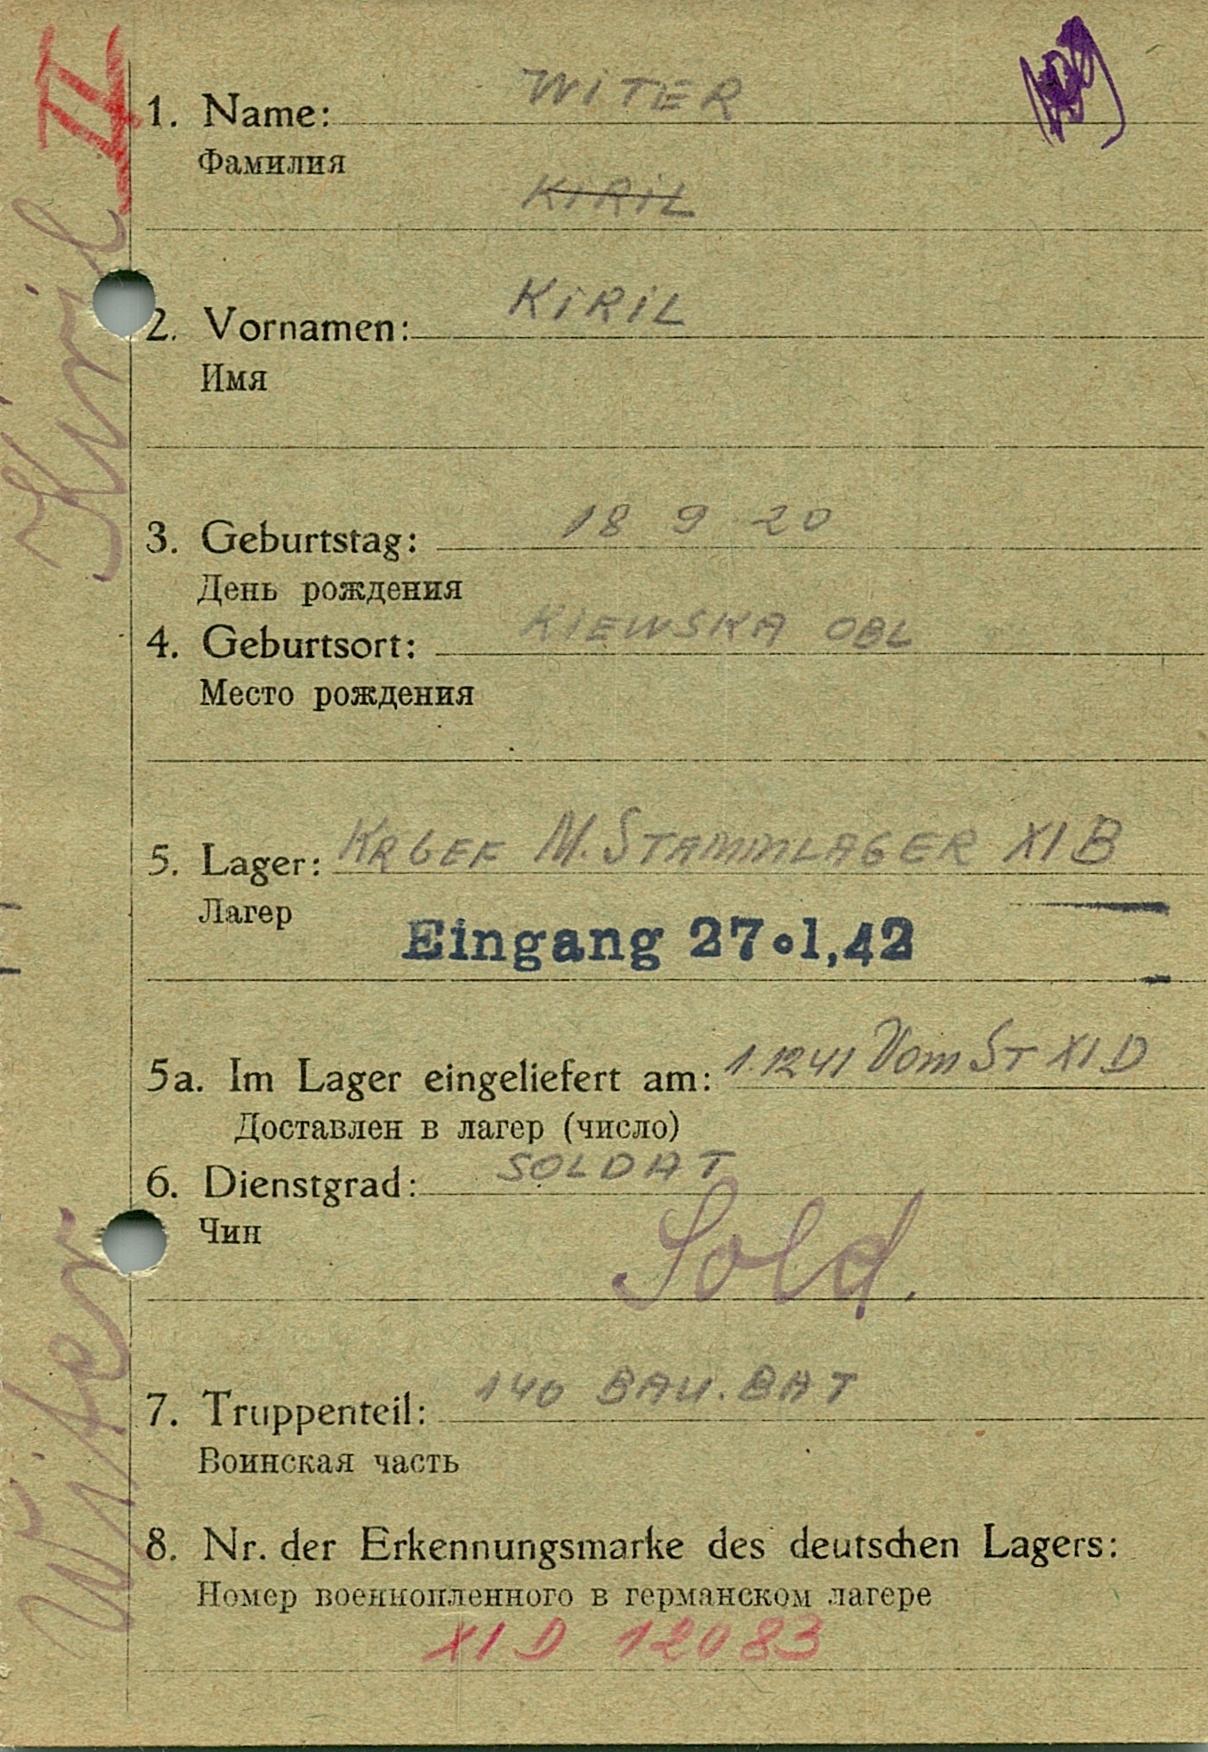 II
1. Name: WITER
Фамилия
KIRIL
2. Vornamen: KIRIL
Имя
3. Geburtstag: 18 9 20
День рождения
4. Geburtsort: KIEWSKA OBL
Место рождения
5. Lager: KRGEF M. STAMMLAGER XI B
Лагер
Eingang 27.1.42
5a. Im Lager eingeliefert am: 1.1241 Vom ST XI D
Доставлен в лагер (число)
6. Dienstgrad: SOLDAT
Чин
Sold.
7. Truppenteil: 140 BAU. BAT
Воинская часть
8. Nr. der Erkennungsmarke des deutschen Lagers:
Номер военнопленного в германском лагере
XI D 12083
Witer Kiril